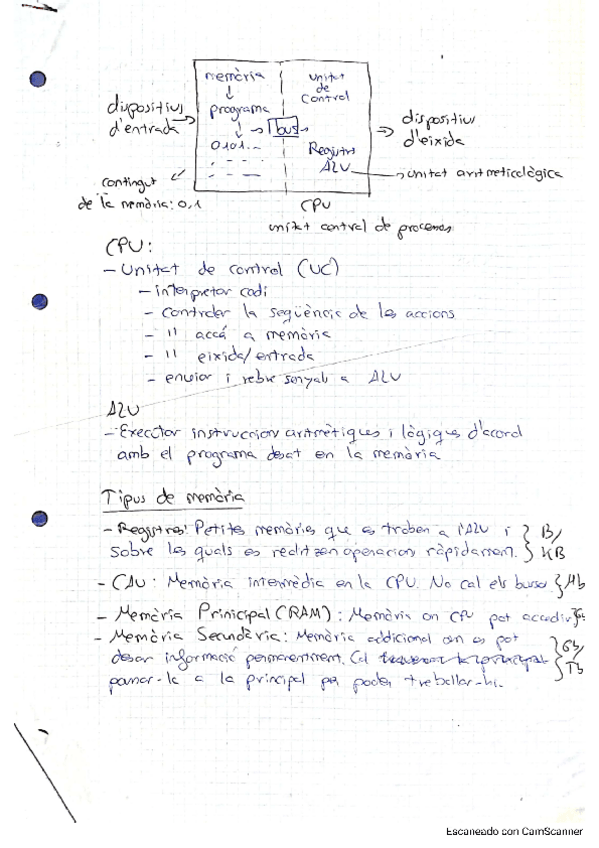 memòria
unitat
de
Control
dispositius
d'entrada
programa
bus
0101...
Registres
ALU
dispositius
d'eixida
unitat aritmeticològica
contingut
de la memòria: 0,1
CPU
unitat control de processos
CPU:
- Unitat de control (UC)
- interpretar codi
- controlar la seqüència de les accions
- " accés a memòria
- " eixida/entrada
- enviar i rebre senyals a ALU
ALU
- Executar instruccions aritmètiques i lògiques d'acord
amb el programa desat en la memòria
Tipus de memòria
- Registres: Petites memòries que es troben a l'ALU i
sobre les quals es realitzen operacions ràpidament.
B/
KB
- CAU: Memòria intermèdia en la CPU. No cal els busos. Mb
- Memòria Prinicipal (RAM): Memòria on CPU pot accedir
- Memòria Secundària: Memòria addicional on es pot
desar informació permanentment. Cal
passar-la a la principal per poder treballar-hi.
Gb/
Tb
Escaneado con CamScanner